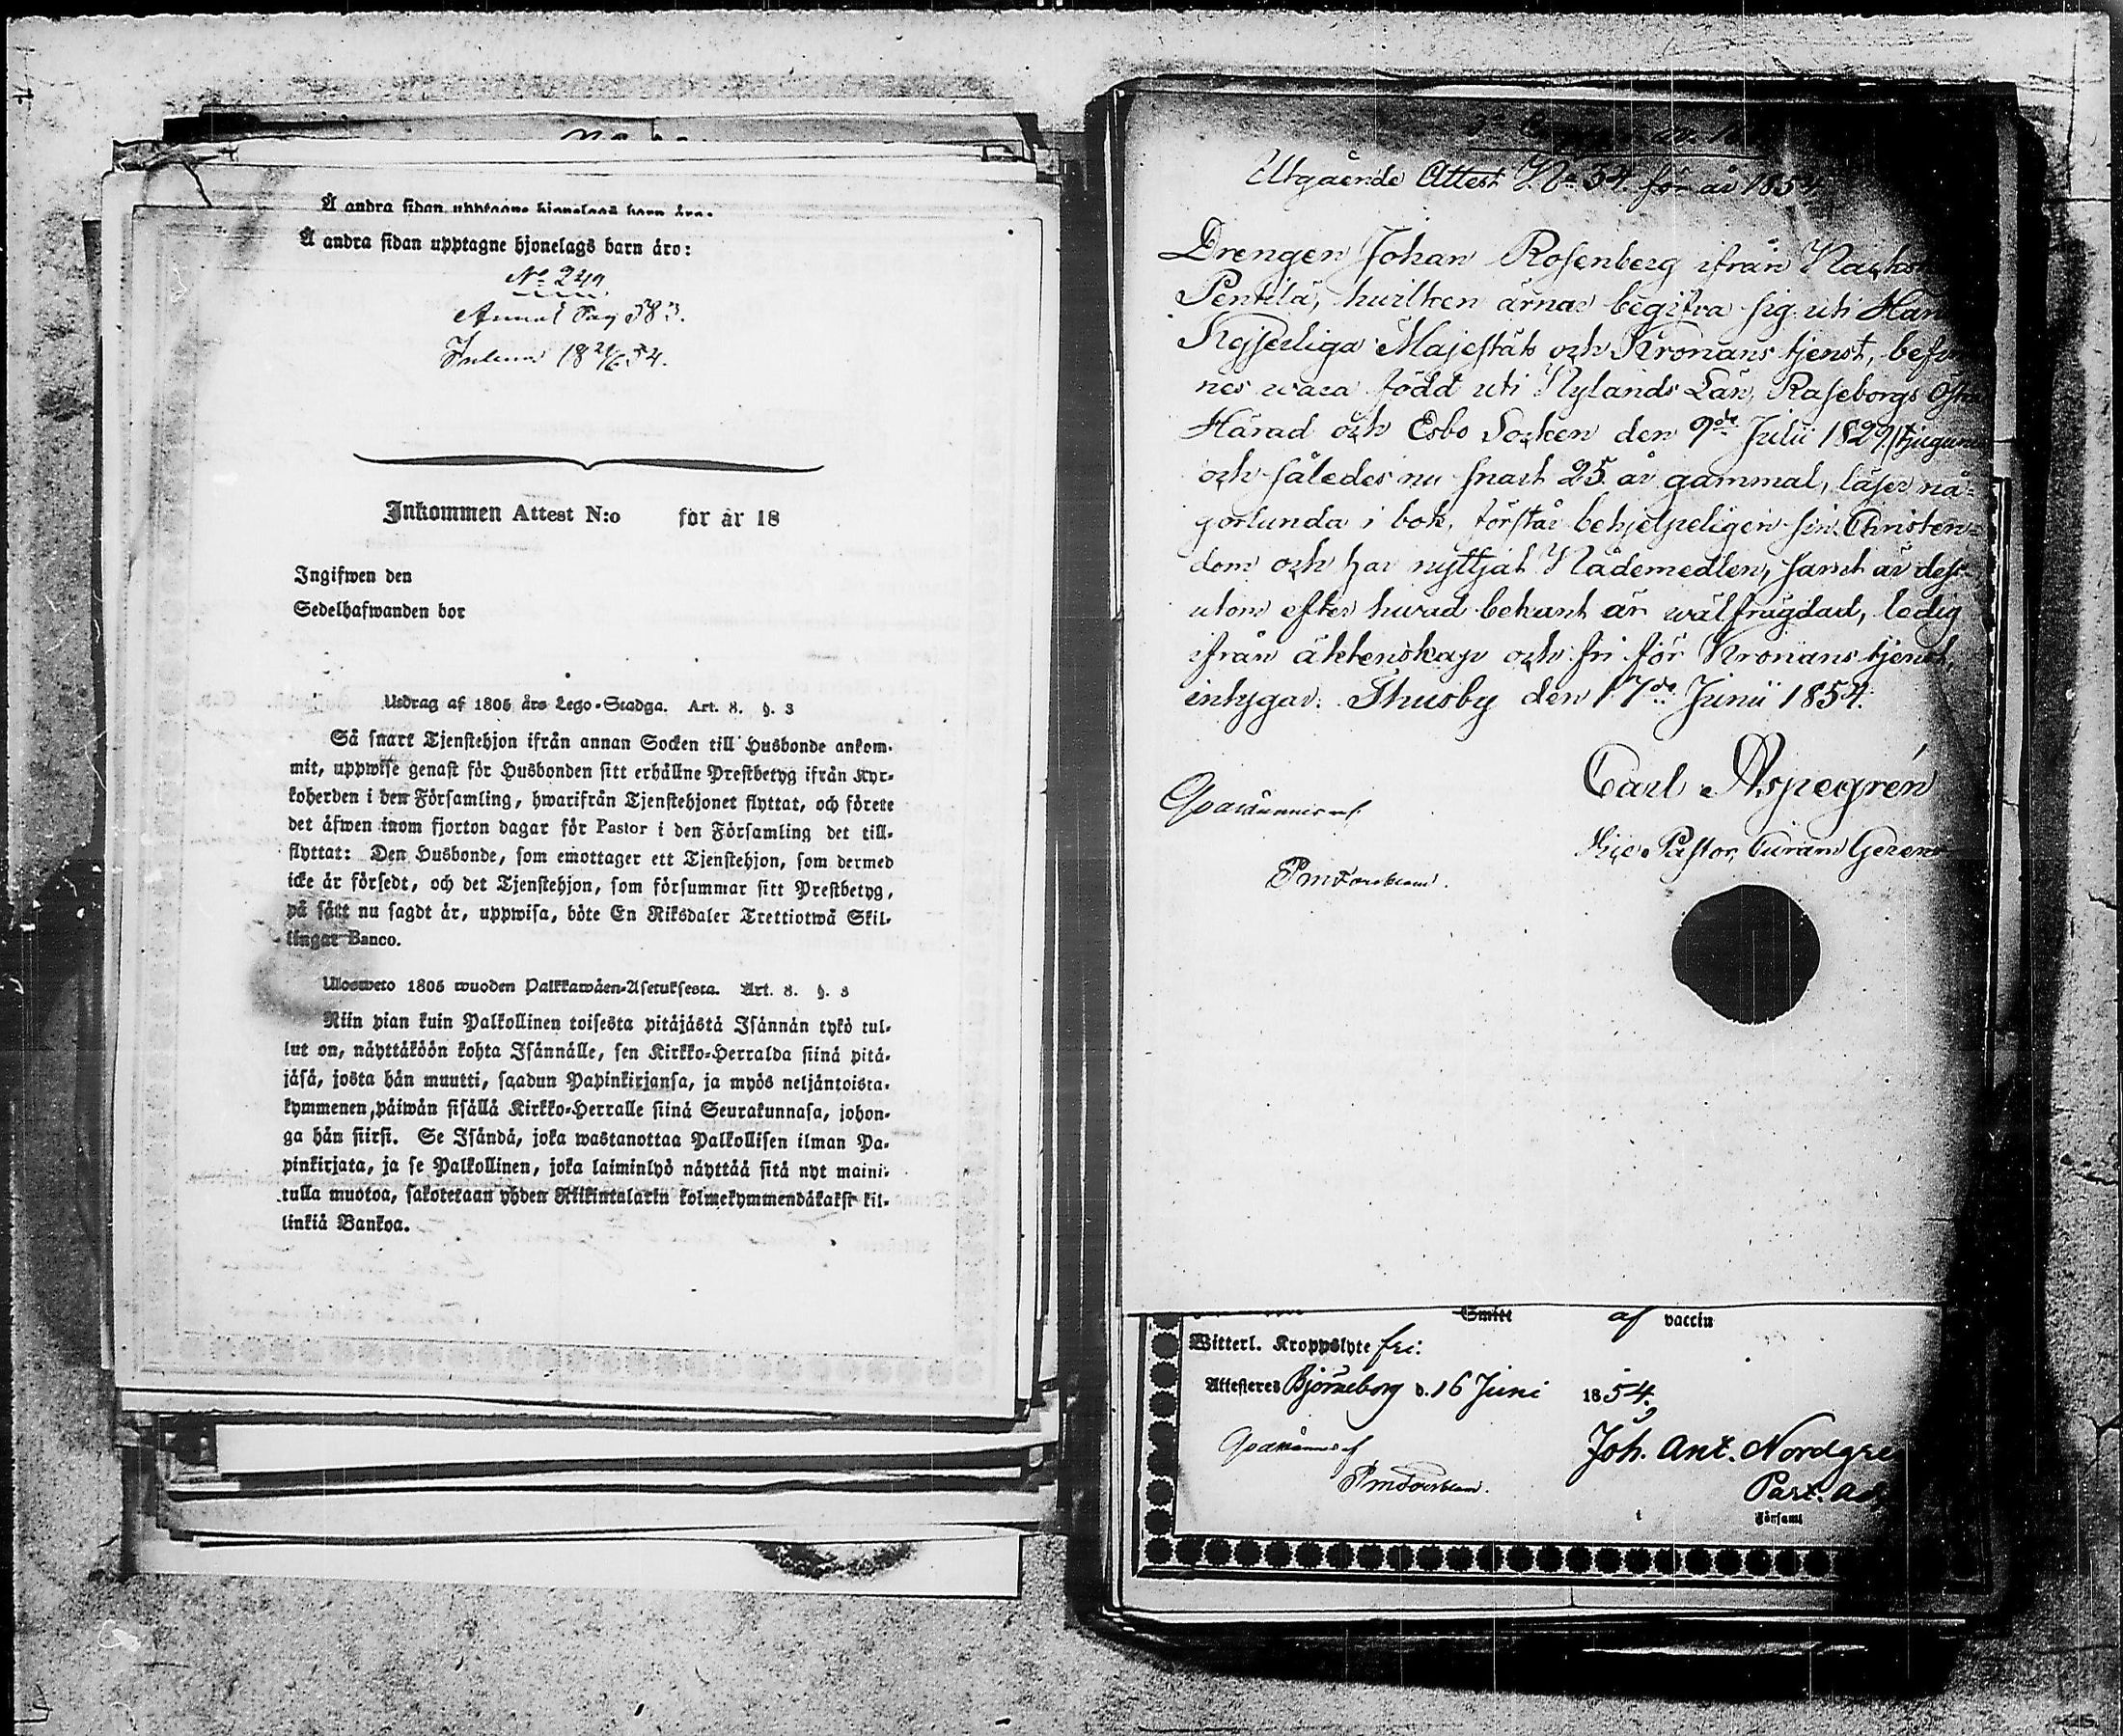 Å andra sidan upptagne hjonelags barn äro:
Å andra sidan upptagne hjonelags barn äro:
No 249
Pag 583.
18 21/6 54.
Inkommen Attest N:o för år 18
Ingifwen den
Sedelhafwanden bor
Utdrag af 1805 års Lego-Stadga. Art. 8. §. 3
Så snart Tjenstehjon ifrån annan Socken till Husbonde ankom-
mit, uppwise genast för Husbonden sitt erhållne Prestbetyg ifrån Kyr-
koherden i den Församling, hwarifrån Tjenstehjonet flyttat, och förete
det äfwen inom fjorton dagar för Pastor i den Församling det till-
flyttat: Den Husbonde, som emottager ett Tjenstehjon, som dermed
icke är försedt, och det Tjenstehjon, som försummar sitt Prestbetyg,
på sätt nu sagdt är, uppwisa, böte En Riksdaler Trettiotwå Skil-
lingar Banco.
Ulosweto 1805 wuoden Palkkawäen-Asetuksesta. Art. 8. §. 3
Niin pian kuin Palkollinen toisesta pitäjästä Isännän tykö tul-
lut on, näyttäköön kohta Isännälle, sen Kirkko-Herralda siinä pitä-
jäsä, josta hän muutti, saadun Papinkirjansa, ja myös neljäntoista-
kymmenen päiwän sisällä Kirkko-Herralle siinä Seurakunnasa, johon-
ga hän siirsi. Se Isändä, joka wastanottaa Palkollisen ilman Pa-
pinkirjata, ja se Palkollinen, joka laiminlyö näyttää sitä nyt maini-
tulla muotoa, sakotetaan yhden Riikintalarin kolmekymmendäkaksi kil-
linkiä Bankoa.
Utgående Attest No 34. för år 1854
Drengen Johan Rosenberg ifrån
Pentilä, hvilken ärnar begifva sig uti Hans
Kejserliga Majestäts och Kronans tjenst, befin
nes wara född uti Nylands Län, Raseborgs Östra
Härad och Esbo Socken den 9de Julii 1829 (tjugunio
och således nu snart 25 år gammal, läser nå-
gorlunda i bok, förstår behjelpeligen sin Christen-
dom och har nyttjat Nådemedlen, samt är dess-
utom efter hwad bekant är wälfrägdad, ledig
ifrån äktenskap och fri för Kronans tjenst,
intygar. Thusby den 17de Junii 1854.
Carl Aspegrén
Vice Pastor, Curam Gerens
Smitt af vaccin
Witterl. Kroppslyte fri:
Attesteres Björneborg d. 16 Juni 1854.
Joh. Ant. Nordgre
Past. Adj.
i Församl